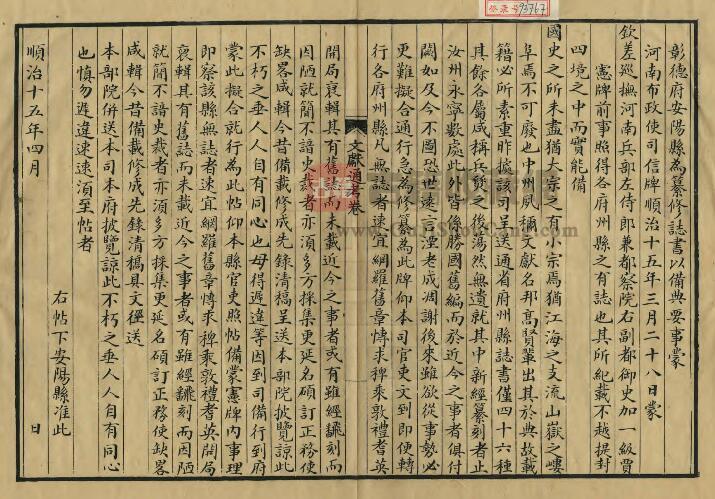 登录号 93767
彰德府安陽縣為纂修誌書以備典要事蒙
河南布政使司信牌順治十五年三月二十八日蒙
欽差巡撫河南兵部左侍郎兼都察院右副都御史加一級賈
憲牌前事照得各府州縣之有誌也其所紀載不越提封
四境之中而實能備
國史之所未盡猶大宗之有小宗焉猶江海之支流山嶽之嶁
阜焉不可廢也中州夙稱文獻名邦髙賢輩出其於典故載
籍必所素重昨據該司呈送通省府州縣誌書僅四十六種
其餘各屬咸稱兵燹之後蕩然無遺就其中新經纂刻者止
汝州永寧數處此外皆係勝國舊編而於近今之事者俱付
闕如及今不圖恐世遠言湮老成凋謝後來雖欲從事勢必
更難擬合通行急為修葺為此牌仰本司官吏文到即便轉
行各府州縣凡無誌者速宜網羅舊章慱求稗乗敦禮者英
文獻通考卷
開局裒輯其有舊誌而未載近今之事者或有雖經鋟刻而
因陋就簡不諳史裁者亦須多方採集更延名碩訂正務使
缺畧咸輯今昔備載修成先錄清稿呈送本部院披覽諒此
不朽之垂人人自有同心也毋得遲違等因到司備行到府
蒙此擬合就行為此帖仰本縣官吏照帖備蒙憲牌内事理
即察該縣無誌者速宜網羅舊章慱求稗乗敦禮者英開局
裒輯其有舊誌而未載近今之事者或有雖經鋟刻而因陋
就簡不諳史裁者亦須多方採集更延名碩訂正務使缺畧
咸輯今昔備載修成先錄清稿具文徑送
本部院併送本司本府披覽諒此不朽之垂人人自有同心
也慎勿遲違速速須至帖者
右帖下安陽縣准此
順治十五年四月　日